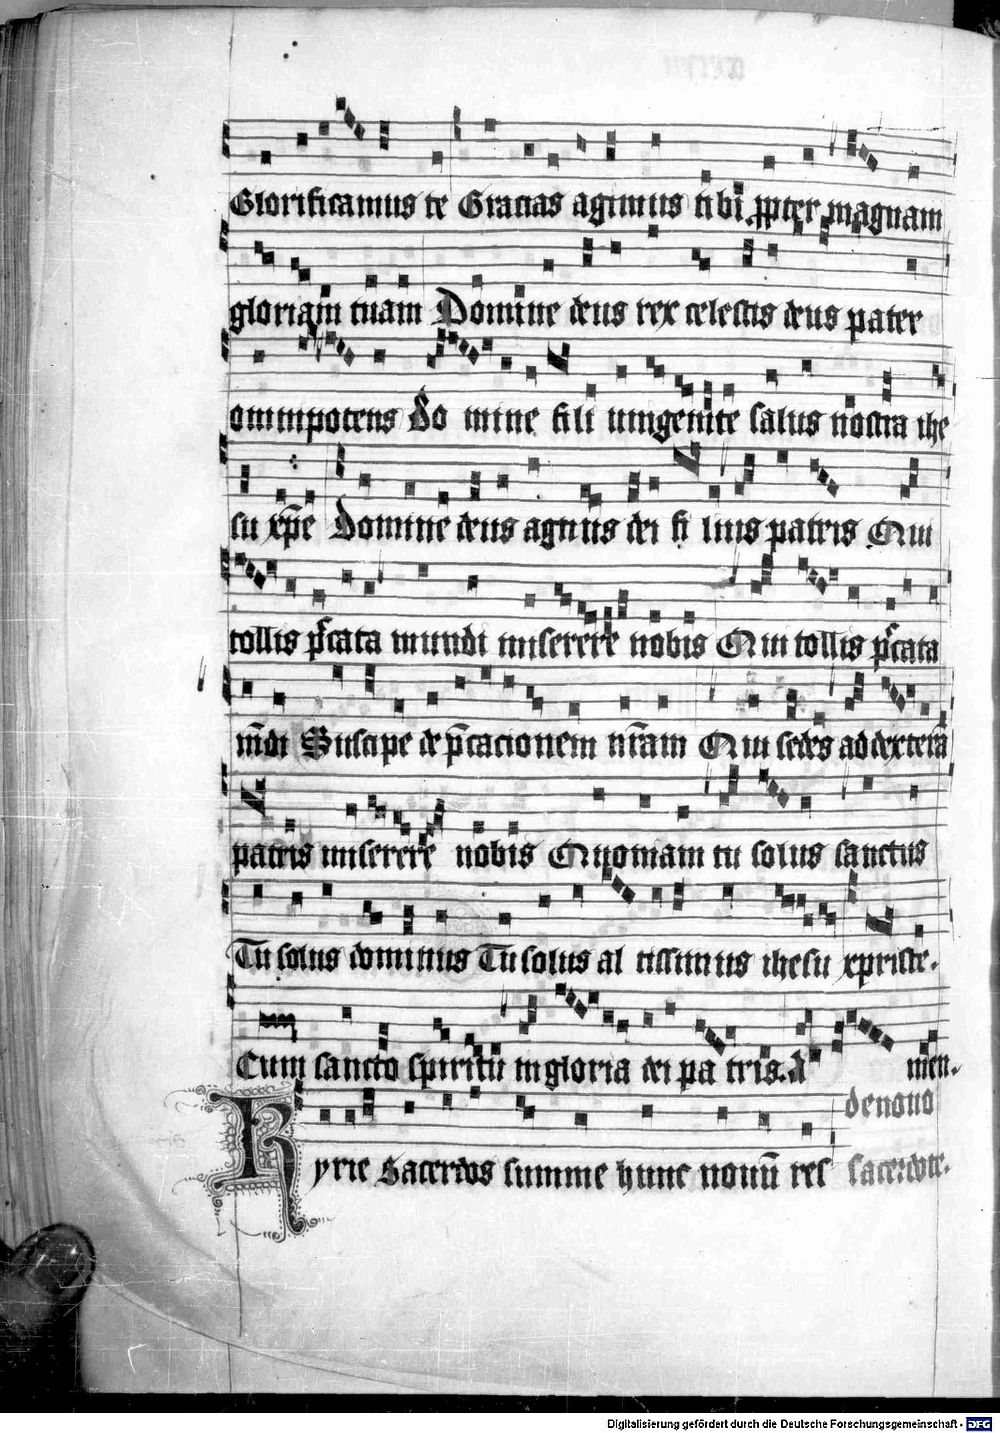 Glorificamus te Gracias agimus tibi ꝓpter magnam
gloriam tuam Domine deus rex celestis deus pater
omnipotens Do mine fili unigenite salus nostra ihe
su xp̄e Domine deus agnus dei fi lius patris Qui
tollis pc̄cata mundi miserere nobis Qui tollis pc̄cata
mūdi Suscipe dep̄cacionem nr̄am Qui sedes ad dexterā
patris miserere nobis Quoniam tu solus sanctus
Tu solus dominus Tu solus al tissimus ihesu xpriste.
Cum sancto spiritu in gloria dei pa tris. A men.
de nouo
Kyrie Sacerdos summe hunc nouū res sacerdote.
Digitalisierung gefördert durch die Deutsche Forschungsgemeinschaft - DFG